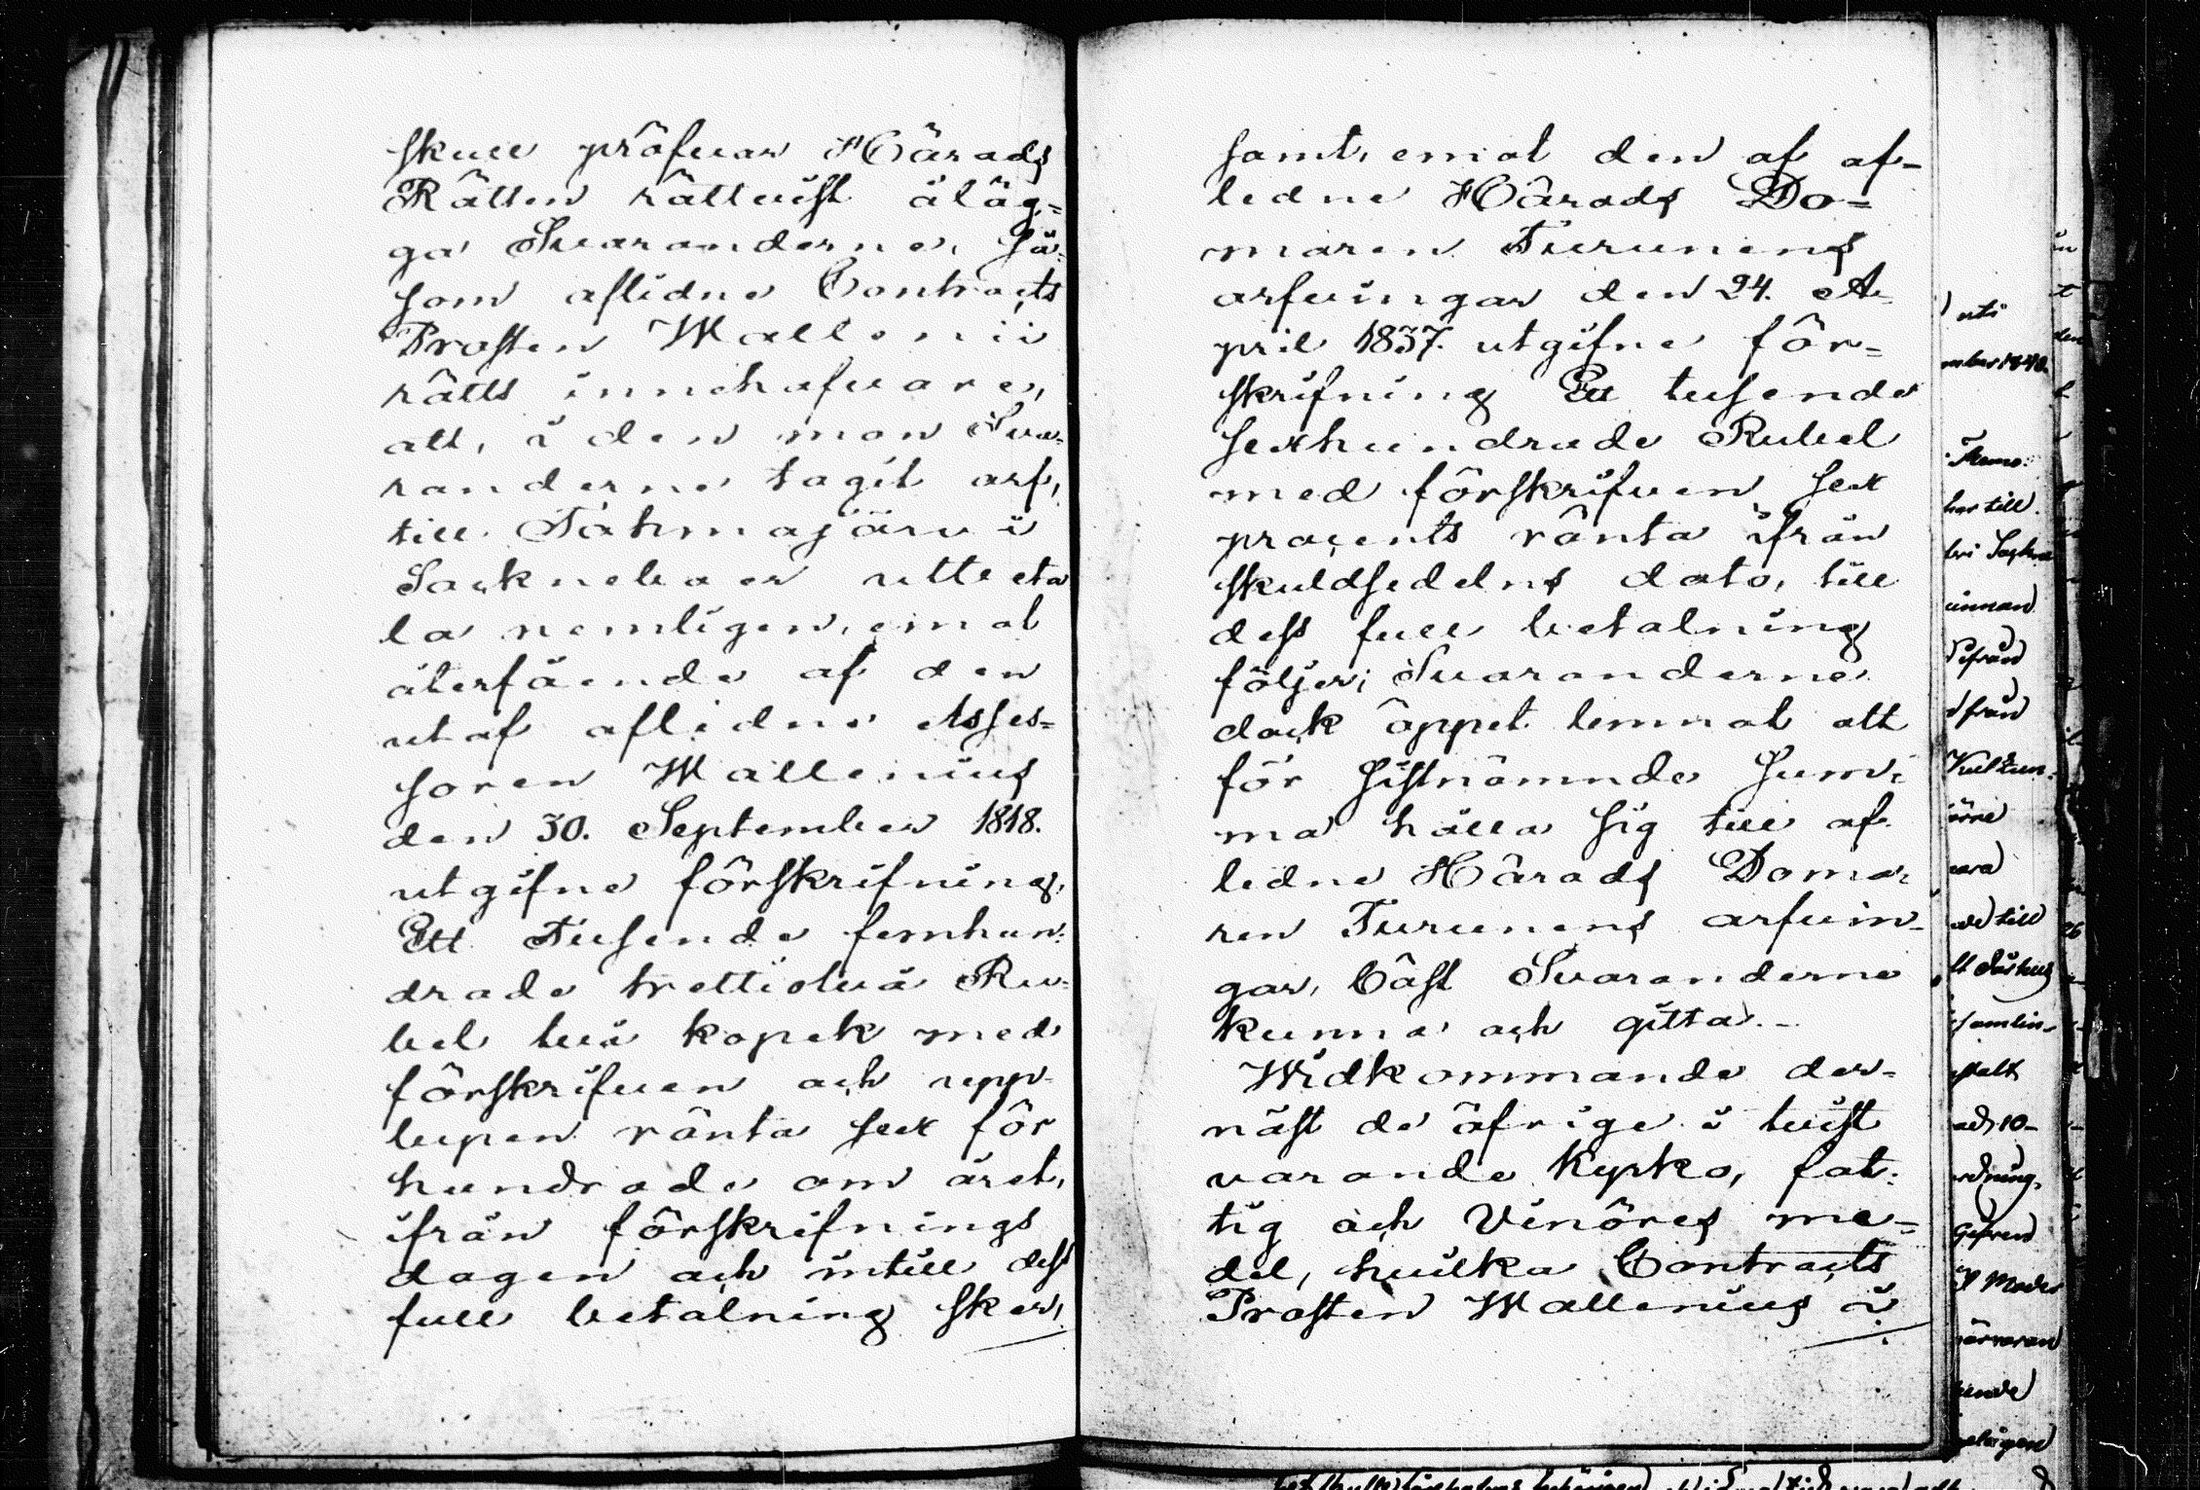 skull pröfvar Härads
Rätten rättvist åläg=
ga Svaranderne, så=
som aflidne Contracts
Prosten Wallenii
rätts innehafvare,
att, i den mon Sva=
randerne tagit arf,
till Tohmajärvi
Sockneboer utbeta
la nemligen, emot
återfående af den
utaf aflidne Asses=
soren Wallenius
den 30. September 1818.
utgifne förskrifning,
Ett Tusende femhun=
drade trettiotvå Ru=
bel två kopek med
förskrifven och upp=
lupen ränta sex för
hundrade om året,
ifrån förskrifnings
dagen och intill dess
full betalning sker,
samt, emot den af af=
ledne Härads Do=
maren Turunens
arfvingar den 24. A=
pril 1837. utgifne för=
skrifning Ett tusende
sexhundrade Rubel
med förskrifven sex
procents ränta ifrån
skuldsedelns dato, till
dess full betalning
följer; Svaranderne
dock öppet lemnat att
för sistnämnde Sum=
ma hålla sig till af
ledne Härads Doma=
ren Turunens arfvin=
gar, bäst Svaranderne
kunna och gitta.-
Widkommande der=
näst de öfrige i tvist
varande Kyrko, fat=
tig och Vinöres me=
del, hvilka Contracts
Prosten Wallenius i
uti
mber 1840.
har till
innan
ifrån
från
till
10-